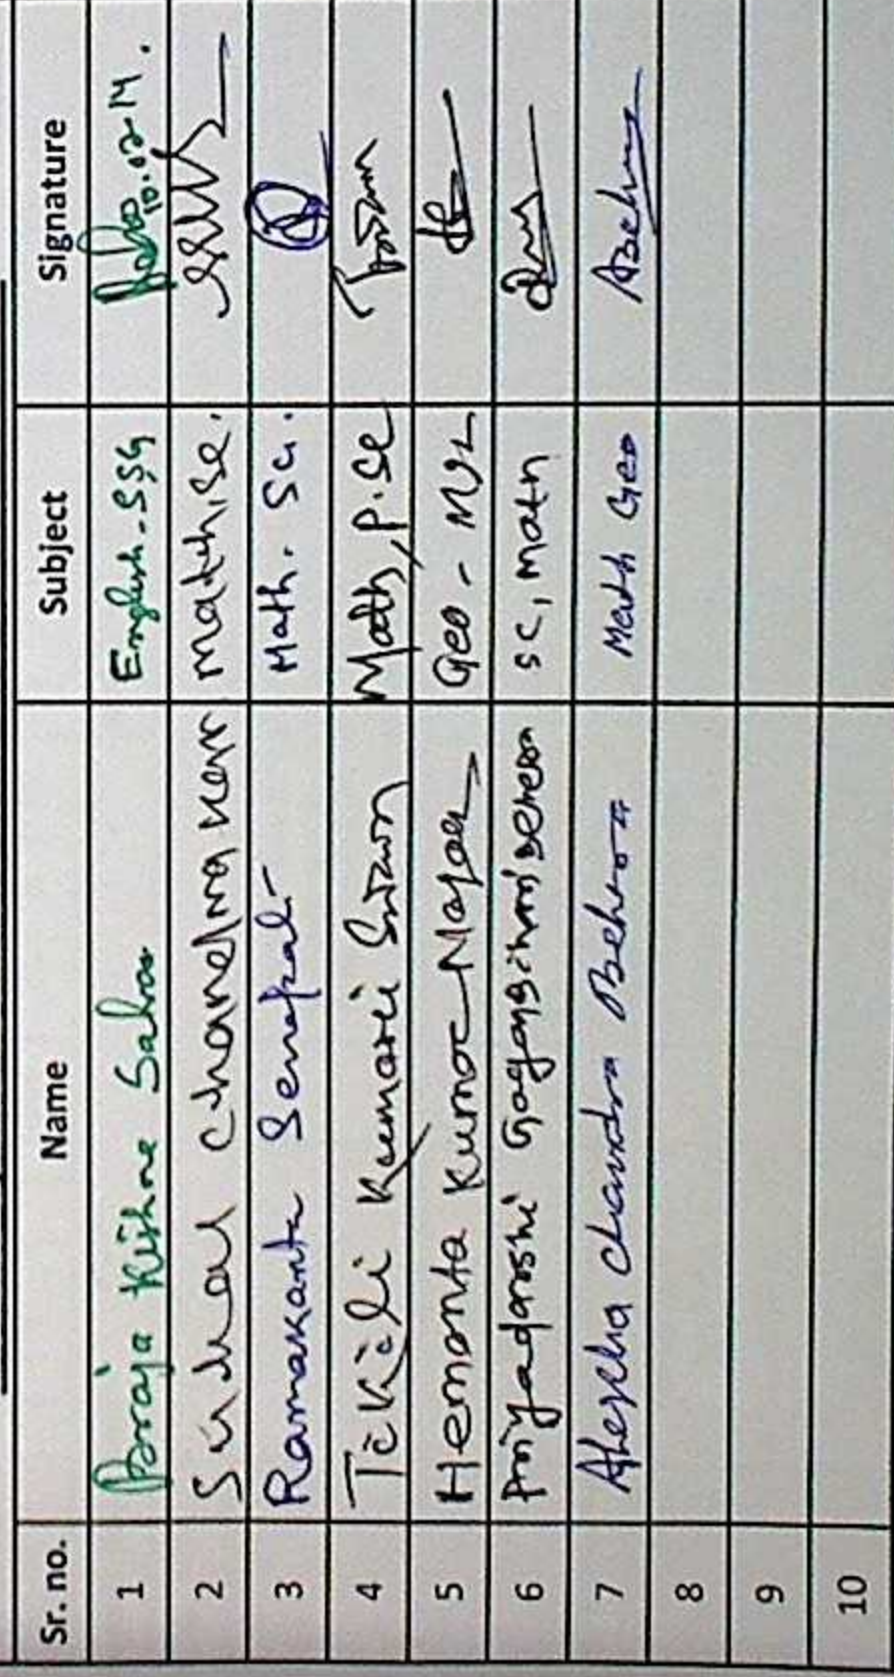 Sr. no. Name Subject Signature
1 Braja Kishore Sahoo English-SSG 10.02.14.
2 Chandra Kar Math, Sc.
3 Ramakanta Senapati Math. Sc.
4 Tikili Kumari Swain Math, P.Sc
5 Hemanta Kumar Nayak Geo -
6 Priyadarshi Gagansihari Behera SC, Math
7 Chandra Behera Math Geo
8
9
10